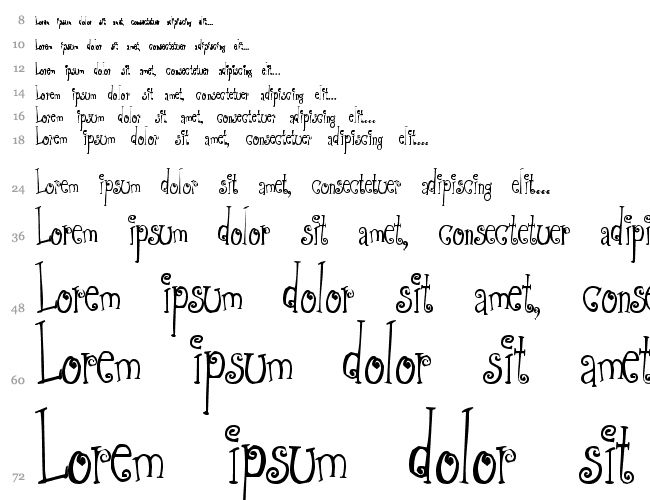 8 Lorem ipsum dolor sit amet, consectetuer adipiscing elit...
10 Lorem ipsum dolor sit amet, consectetuer adipiscing elit...
12 Lorem ipsum dolor sit amet, consectetuer adipiscing elit...
14 Lorem ipsum dolor sit amet, consectetuer adipiscing elit...
16 Lorem ipsum dolor sit amet, consectetuer adipiscing elit....
18 Lorem ipsum dolor sit amet, consectetuer adipiscing elit....
24 Lorem ipsum dolor sit amet, consectetuer adipiscing elit...
36 Lorem ipsum dolor sit amet, consectetuer adipi
48 Lorem ipsum dolor sit amet, conse
60 Lorem ipsum dolor sit amet
72 Lorem ipsum dolor sit